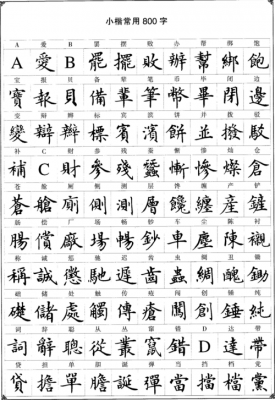 小楷常用800字
A 爱 B 罢 摆 败 办 帮 绑 饱
A 愛 B 罷 擺 敗 辦 幫 綁 飽
宝 报 贝 备 辈 笔 币 毕 闭 边
寶 報 貝 備 輩 筆 幣 畢 閉 邊
变 辩 辫 标 宾 滨 饼 并 拨 驳
變 辯 辮 標 賓 濱 餅 並 撥 駁
补 C 财 参 残 蚕 惭 惨 灿 仓
補 C 財 參 殘 蠶 慚 慘 燦 倉
苍 舱 厕 侧 测 层 馋 缠 产 铲
蒼 艙 廁 側 測 層 饞 纏 產 鏟
肠 偿 厂 场 畅 钞 车 尘 陈 衬
腸 償 廠 場 暢 鈔 車 塵 陳 襯
称 诚 惩 驰 迟 齿 虫 绸 丑 锄
稱 誠 懲 馳 遲 齒 蟲 綢 醜 鋤
础 储 处 触 传 疮 闯 创 锤 纯
礎 儲 處 觸 傳 瘡 闖 創 錘 純
词 辞 聪 从 丛 窜 错 D 达 带
詞 辭 聰 從 叢 竄 錯 D 達 帶
贷 担 单 胆 诞 弹 当 挡 档 党
貸 擔 單 膽 誕 彈 當 擋 檔 黨